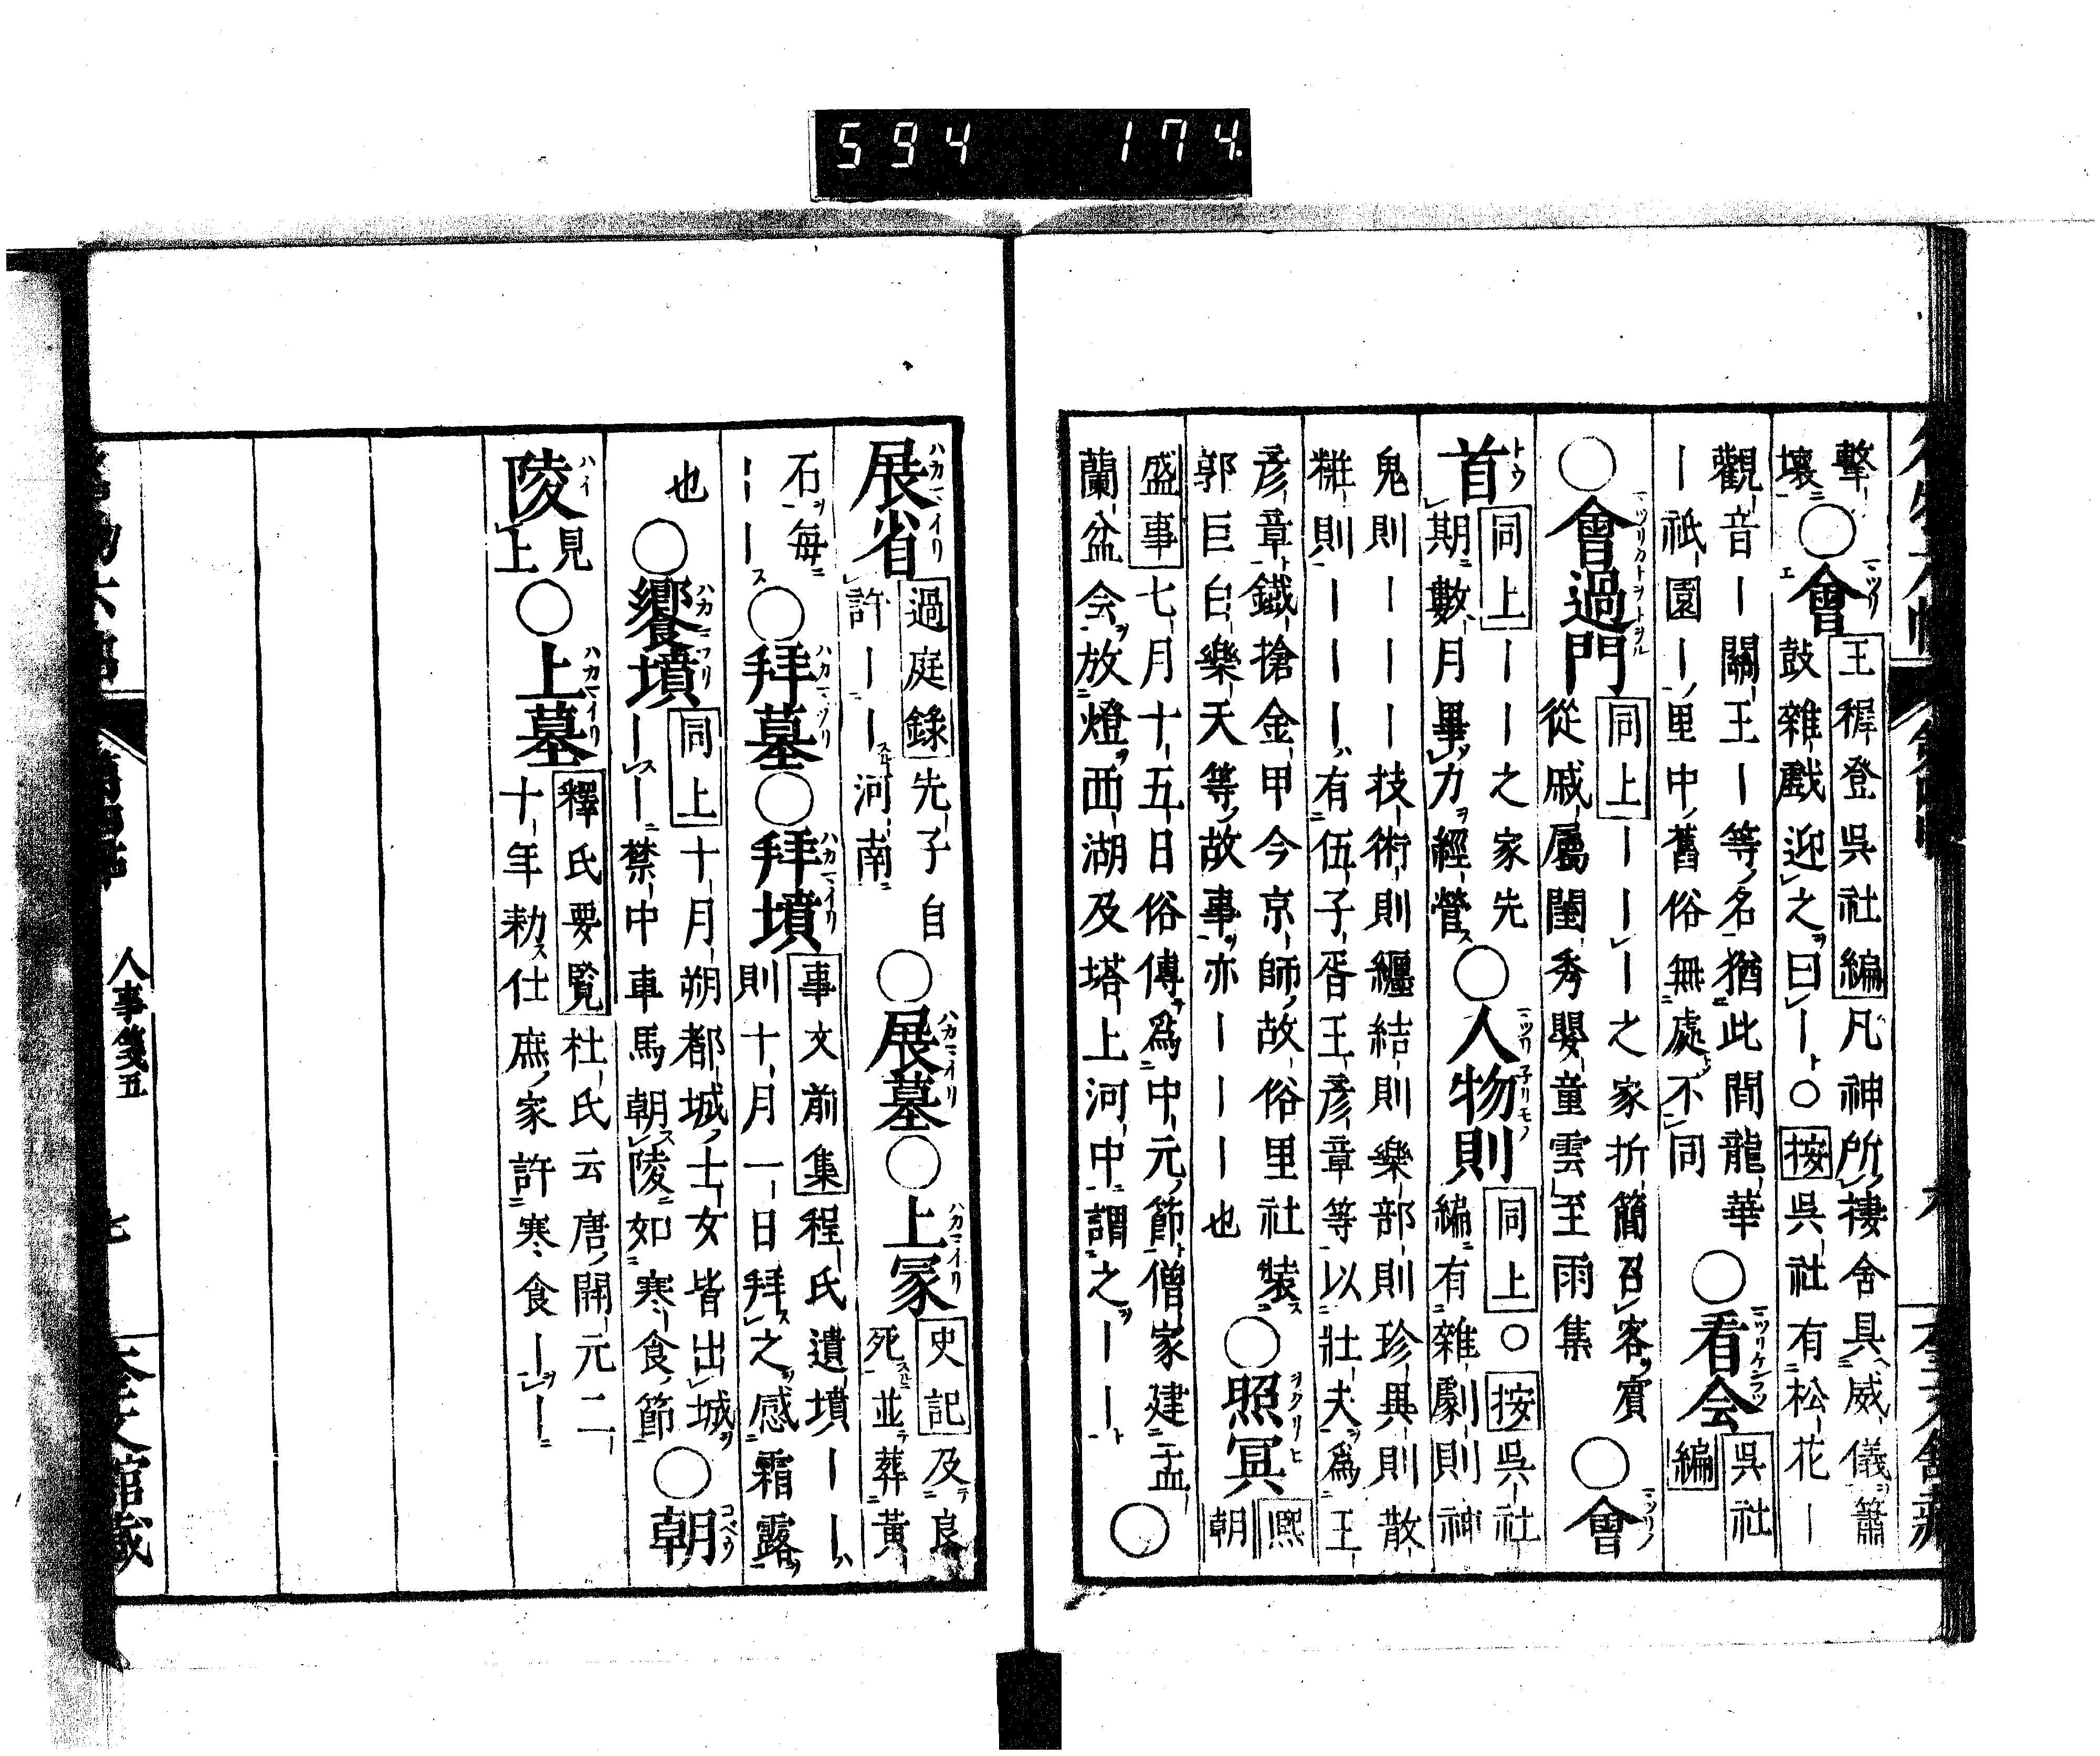 594 174
擊
壞ニ
○會
王穉登吳社編 凡神所棲舍具威儀簫
鼓雜戲迎之曰ー○按吳社有松花ー
觀音ー關王ー等名猶此間龍華
ー祇園ー里中舊俗無處不同
○看会
吳社
編
○會過門
同上 ーーー之家折簡召客賓
從戚屬閨秀嬰童雲至雨集
○會
首
同上 ーー之家先
期數月畢力經營
○人物則
同上○按吳社
編有雜劇則神
鬼則ーーー技術則纏結則樂部則珍異則散
粧則ーーーー有伍子胥王彥章等以壯夫爲王
彥章鐵搶金甲今京師故俗里社裝
郭巨白樂天等故事亦ーーー也
○照冥
熙
朝
盛事 七月十五日俗傳爲中元節僧家建盂
蘭盆会放燈西湖及塔上河中謂之ーー
○
展省
過庭錄 先子自
許ーー河南
○展墓○上冢
史記 及良
死並葬黃
石每
ーー
○拜墓○拜墳
事文前集 程氏遺墳ーー
則十月一日拜之感霜露
也
○饗墳
同上 十月朔都城士女皆出城
ーー禁中車馬朝陵如寒食節
○朝
陵
見
上
○上墓
釋氏要覧 杜氏云唐開元二
十年勅仕庶家許寒食ーー
人事箋五
七